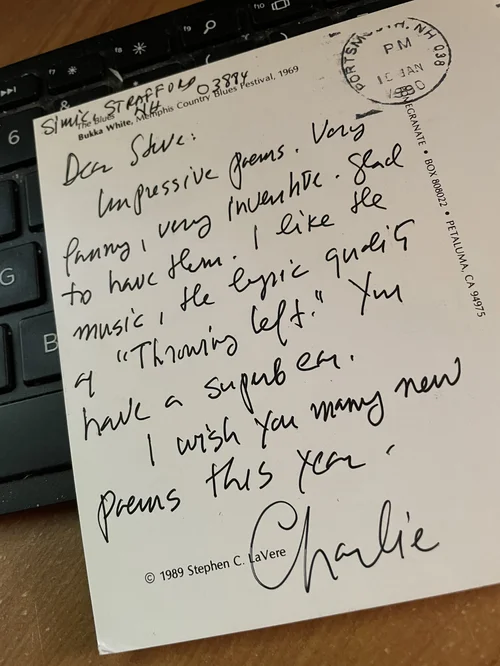 SIMIC STRAFFORD NH 03884
The Blues
Bukka White, Memphis Country Blues Festival, 1969
PORTSMOUTH, NH 038
PM
JAN
Dear Steve:
Impressive poems. Very
funny, very inventive. Glad
to have them. I like the
music, the lyric quality
of "Throwing left." You
have a superb ear.
I wish you many new
poems this year.
Charlie
© 1989 Stephen C. LaVere
POMEGRANATE • BOX 808022 • PETALUMA, CA 94975
6
G
B